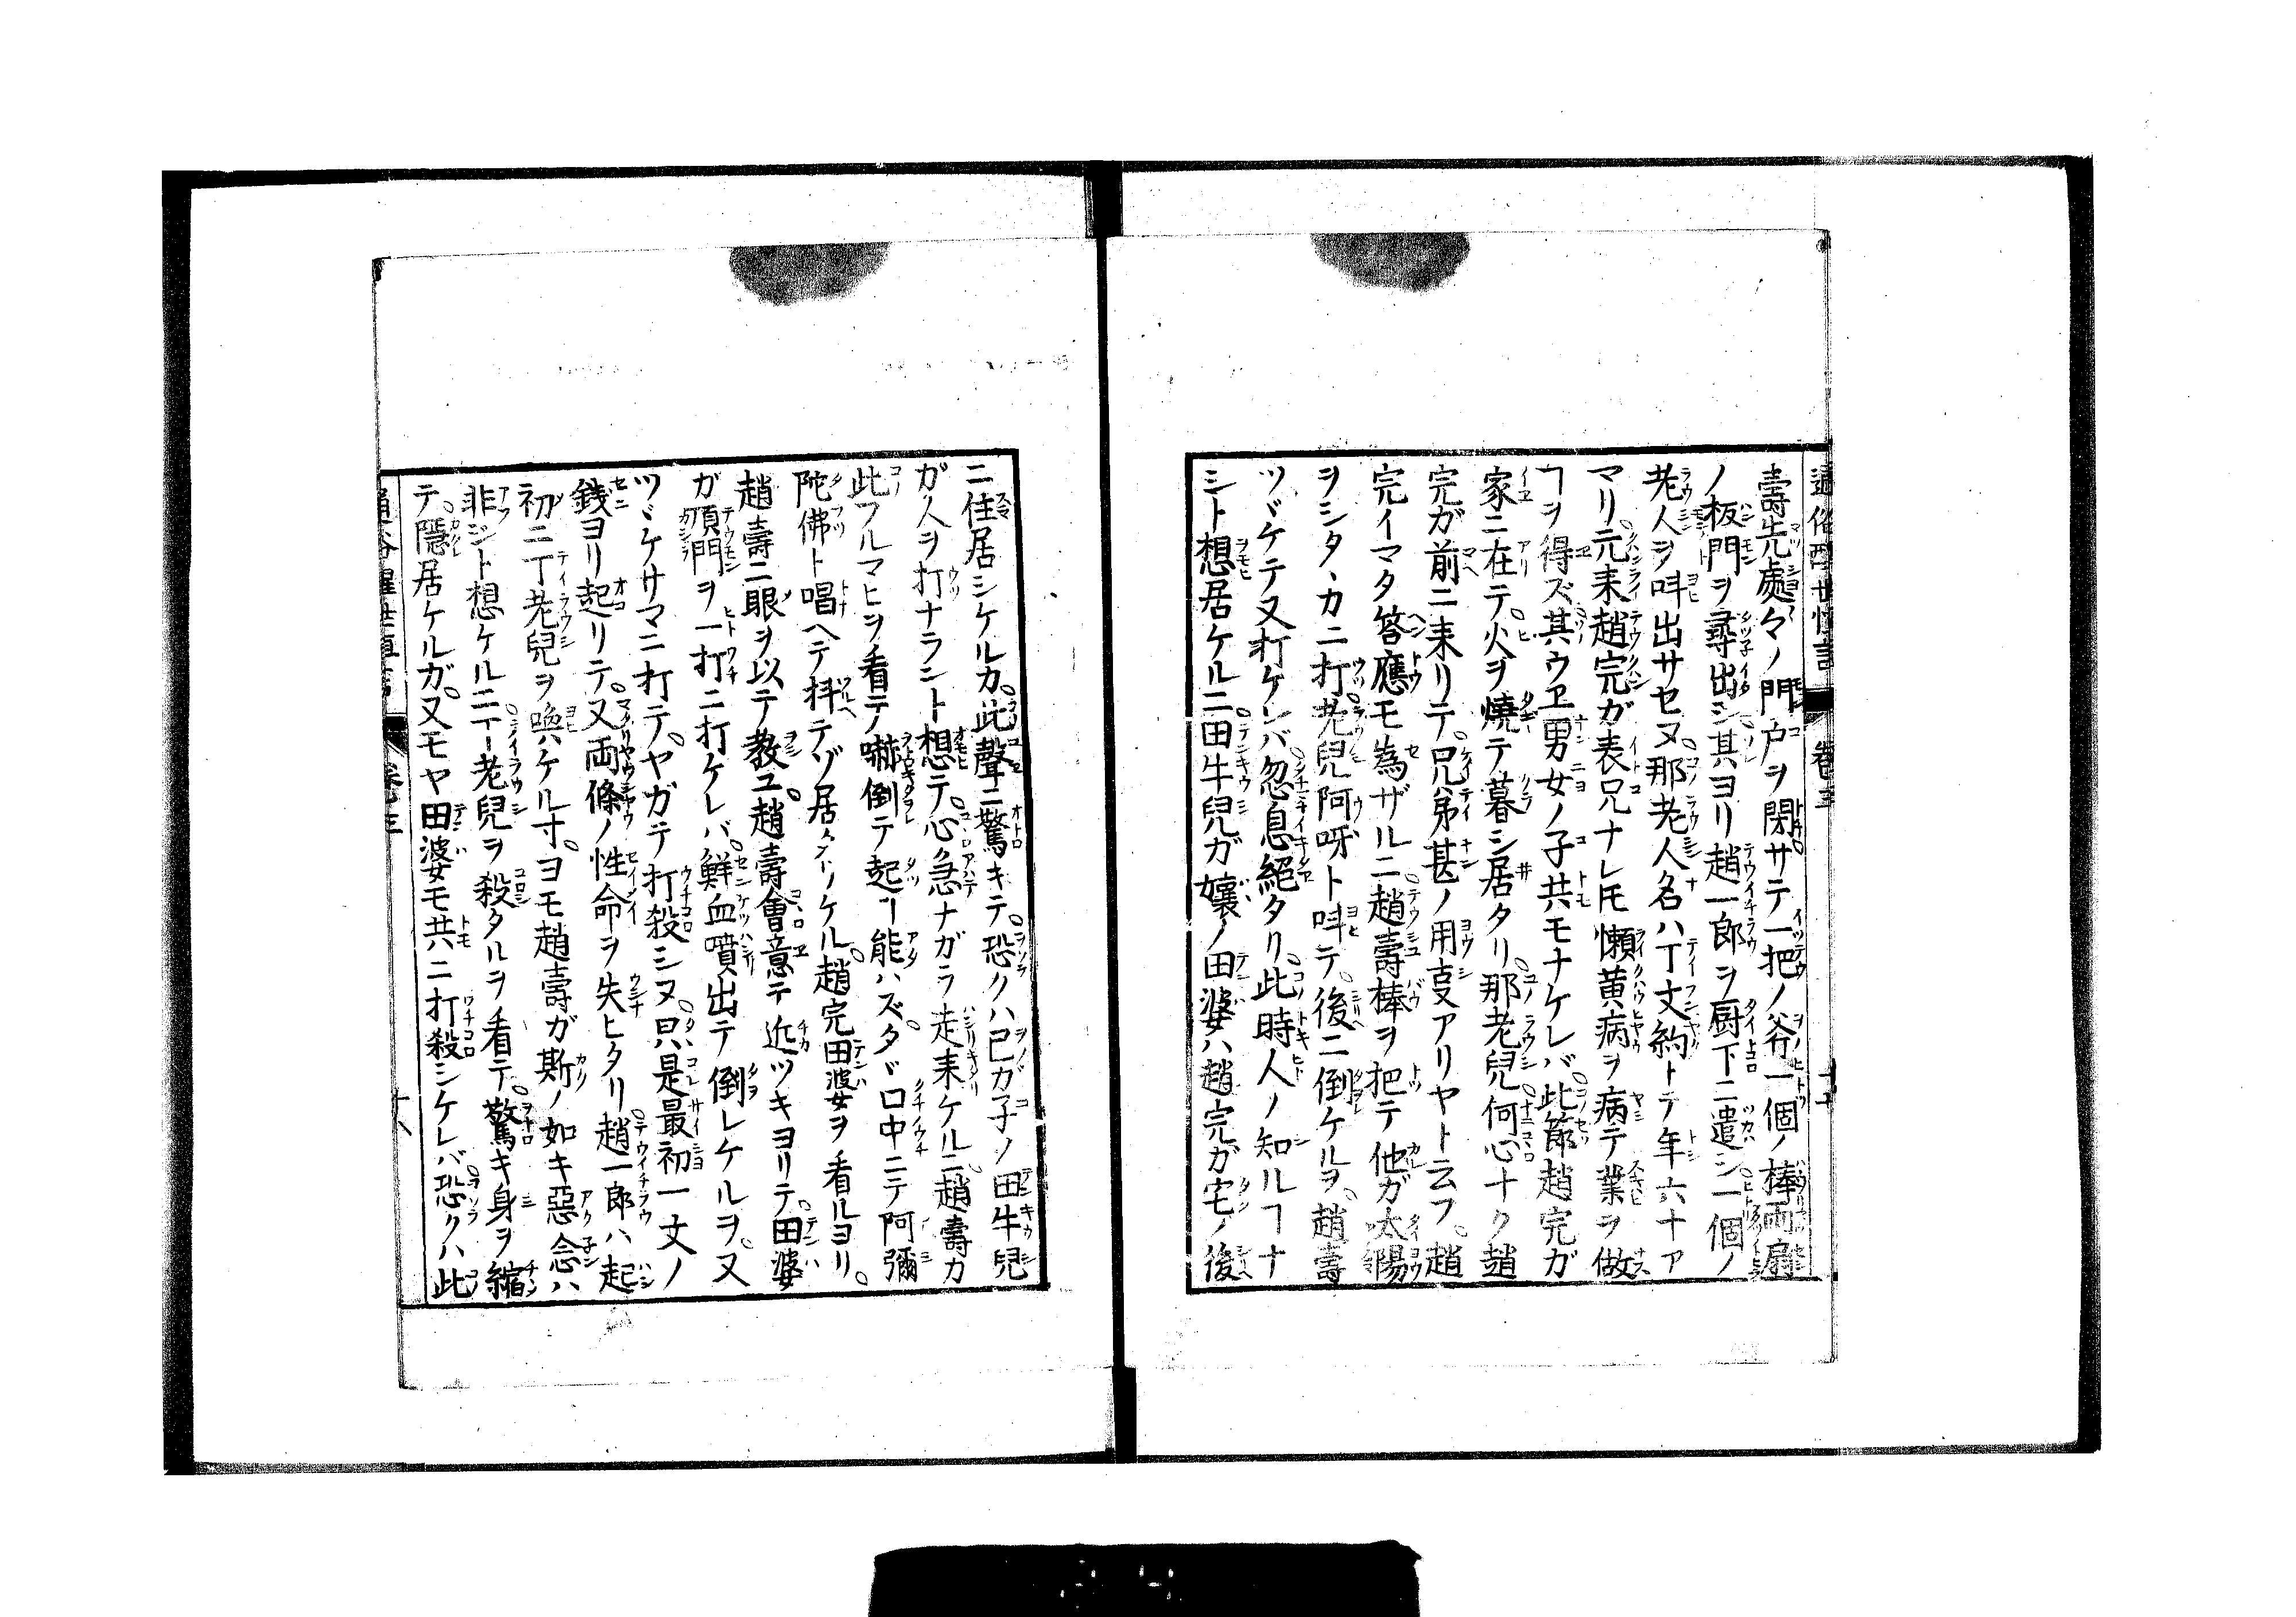 通俗醒世恒言 卷之三 十七
壽先處々ノ門戸ヲ閉サテ一把ノ斧一個ノ棒両扇
ノ板門ヲ尋出シ其ヨリ趙一郎ヲ厨下ニ遣シ一個ノ
老人ヲ呌出サセヌ那老人名ハ丁文約トテ年六十ア
マリ元来趙完ガ表兄ナレ𪜈懶黄病ヲ病テ業ヲ做
ヿヲ得ズ其ウヱ男女ノ子共モナケレバ此節趙完ガ
家ニ在テ火ヲ燒テ暮シ居タリ那老兒何心ナク趙
完ガ前ニ来リテ兄弟甚ノ用叓アリヤト云フ趙
完イマタ答應モ為ザルニ趙壽棒ヲ把テ他ガ太陽
ヲシタヽカニ打老兒阿呀ト呌テ後ニ倒ケルヲ趙壽
ツヾケテ又打ケレバ忽息絶タリ此時人ノ知ルヿナ
シト想居ケルニ田牛兒ガ孃ノ田婆ハ趙完ガ宅ノ後
ニ住居シケルカ此聲ニ驚キテ恐クハ已カ子ノ田牛兒
ガ人ヲ打ナラント想テ心急ナガラ走来ケルニ趙壽カ
此フルマヒヲ看テ嚇倒テ起ヿ能ハズタヾ口中ニテ阿彌
陀佛ト唱ヘテ抖テゾ居タリケル趙完田婆ヲ看ルヨリ
趙壽ニ眼ヲ以テ教ユ趙壽會意テ近ツキヨリテ田婆
ガ頂門ヲ一打ニ打ケレバ鮮血噴出テ倒レケルヲ又
ツヾケサマニ打テヤガテ打殺シヌ只是最初一文ノ
錢ヨリ起リテ又両條ノ性命ヲ失ヒタリ趙一郎ハ起
初ニ丁老兒ヲ喚ハケル寸ヨモ趙壽ガ斯ノ如キ惡念ハ
非ジト想ケルニ丁老兒ヲ殺タルヲ看テ驚キ身ヲ縮
テ隱居ケルガ又モヤ田婆モ共ニ打殺シケレバ恐クハ此
通俗醒世恒言 卷之三 十八